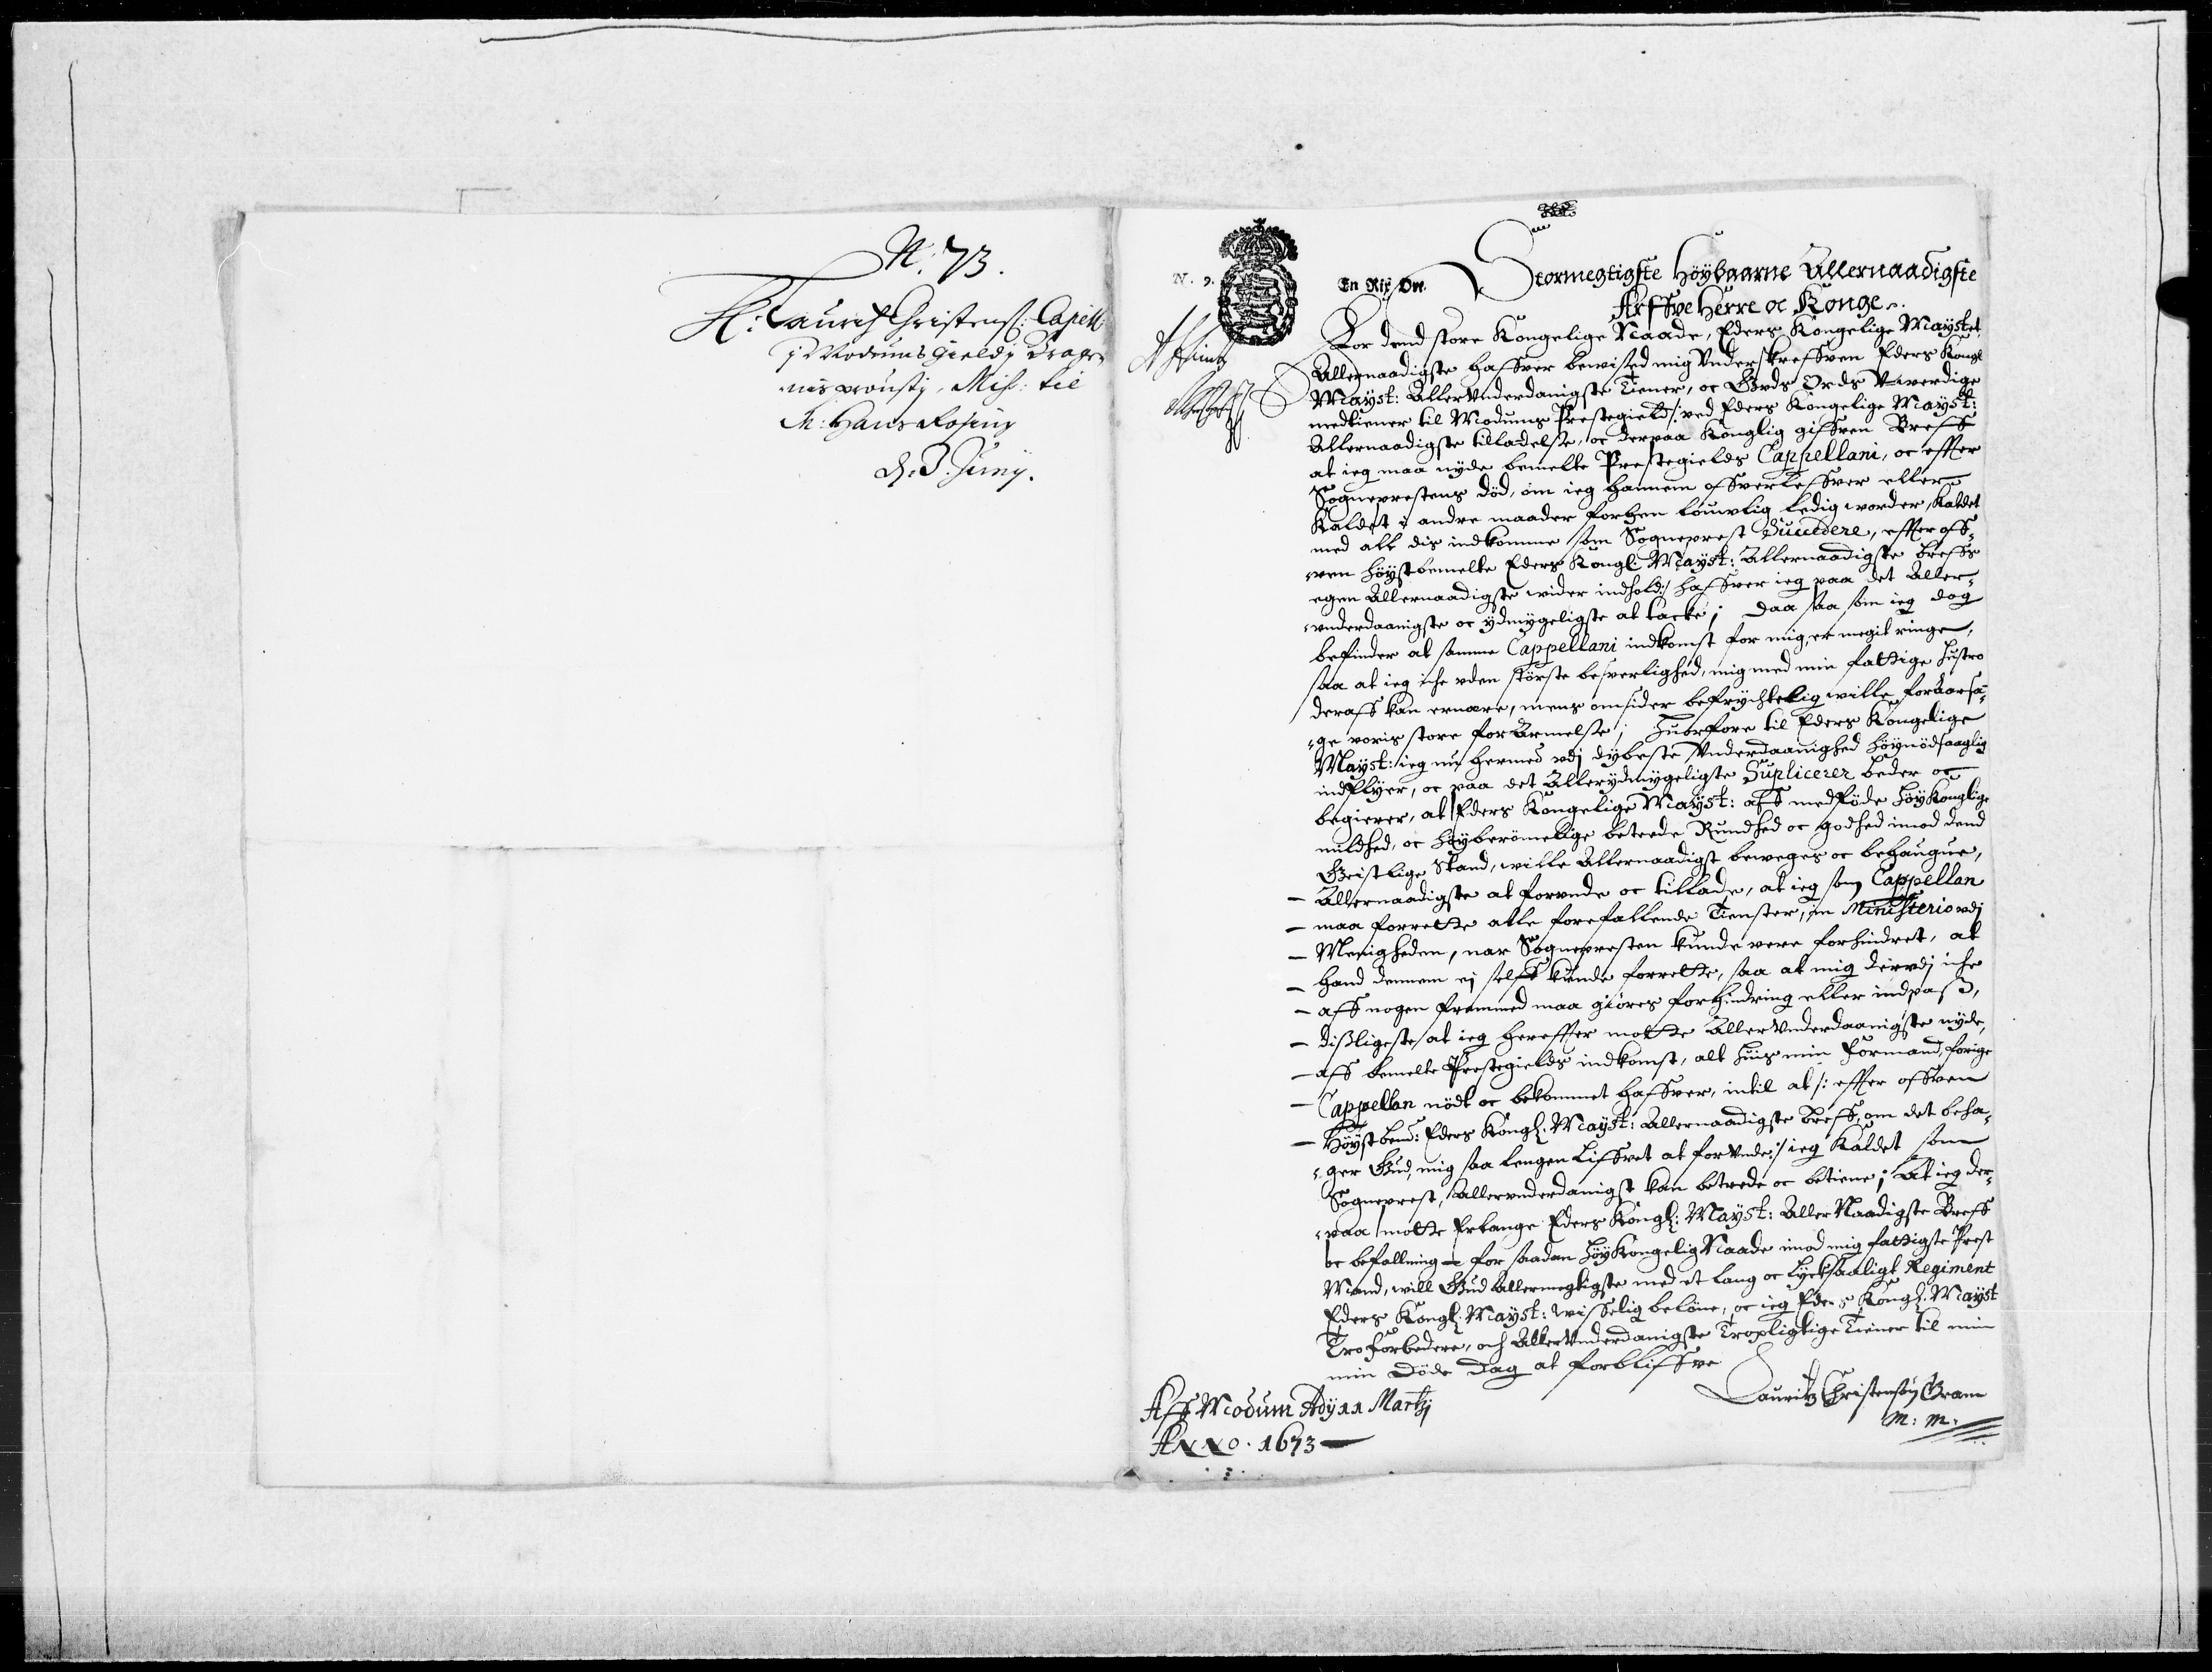 N: 73.
H: Laurids Christens: Capell:
J Modums gieldj Trager
nis prousti, Miss: til
M: Hans Rosing
d. 3. Junij.
N. 9.
En Rix Ort.
Stormegtigste Höÿbaarne Allernaadigste
Arffve Herre oc Konge.
For dend store Kongelige Naade, Eders Kongelige Maÿstet
Allernaadigste haffver bewised mig Underskreffven Eders Kongl
Maÿst: Allerunderdanigste Tiener, oc Guds Ords Uwerdige
medtiener til Modums Prestegield /: ved Eders Kongelige Maÿst:
Allernaadigste tilladelse, oc derpaa Konglig giffven Breff
at ieg maa nyde bemelte Prestegields Cappellani, oc effter
Sogneprestens död, om ieg hannem offverleffver eller
Kaldet i andre maader forhen louvlig ledig worder, Kaldet
med alt dis indkomme som Sogneprest Succedere, effter off¬
ven höÿstbemelte Eders Kongl: Maÿst: Allernaadigste breffs
egen Allernaadigste wider indhold :/ haffver ieg paa det Aller¬
underdaanigste oc ydmygeligste at tacke; Daa saa som ieg dog
befinder at samme Cappellani indkomst for mig, er megit ringe,
saa at ieg iche uden störste beswerlighed, mig med min fattige Hustro
deraff kan ernære, mens omsider befrychtelig wille foraarsa¬
ge voris store forArmelse; Huorfore til Eders Kongelige
Maÿst: ieg nu hermed udj dybeste Underdaanighed höÿnödsaglig
indflyer, oc paa det Allerydmygeligste Suplicerer beder oc
begierer, at Eders Kongelige Maÿst: aff medföde höÿKonglige
mildhed, oc Höÿberömelige beteede Rundhed oc godhed imod dend
Geistlige Stand, wille Allernaadigst beweges oc behaugue,
Allernaadigste at forunde oc tillade, at ieg som Cappellan
maa forrette alle forefallende Tienster, in Ministerio udj
Menigheden, nar Sognepresten kunde vere forhindret, at
hand dennem ej self kunde forrette, saa at mig derudj iche
aff nogen fremmed maa giöres forhindring eller indpass,
disligeste at ieg hereffter motte Allerunderdaanigste nyde,
aff bemelte Prestegields indkomst, alt huis min Formand, forige
Cappellan nödt oc bekommet haffver, intil at /: effter offven
Höÿstbem: Eders Kongl. Maÿst: Allernaadigste Breff, om det beha¬
ger Gud, mig saa lengen Liffvet at forunde :/ ieg Kaldet som
Sogneprest, Allerunderdanigst kan betrede oc betiene; At ieg der¬
paa motte Erlange Eders Kongl: Maÿst: Aller Naadigste Breff
oc befallning for saadan höÿKongelig Naade imod mig fattigste Prest
Mand, will Gud Allermegtigste med et lang oc Lycksaaligt Regiment
Eders Kongl: Maÿst: wisselig belöne, oc ieg Eders Kongl. Maÿst
Tro forbedere, och Allerunderdanigste Tropligtige Tiener til min
min döde Dag at forbliffve
Lauritz Christensön Gram
m: m.
Aff Modum Adÿ 11 Martzj
Anno. 1673